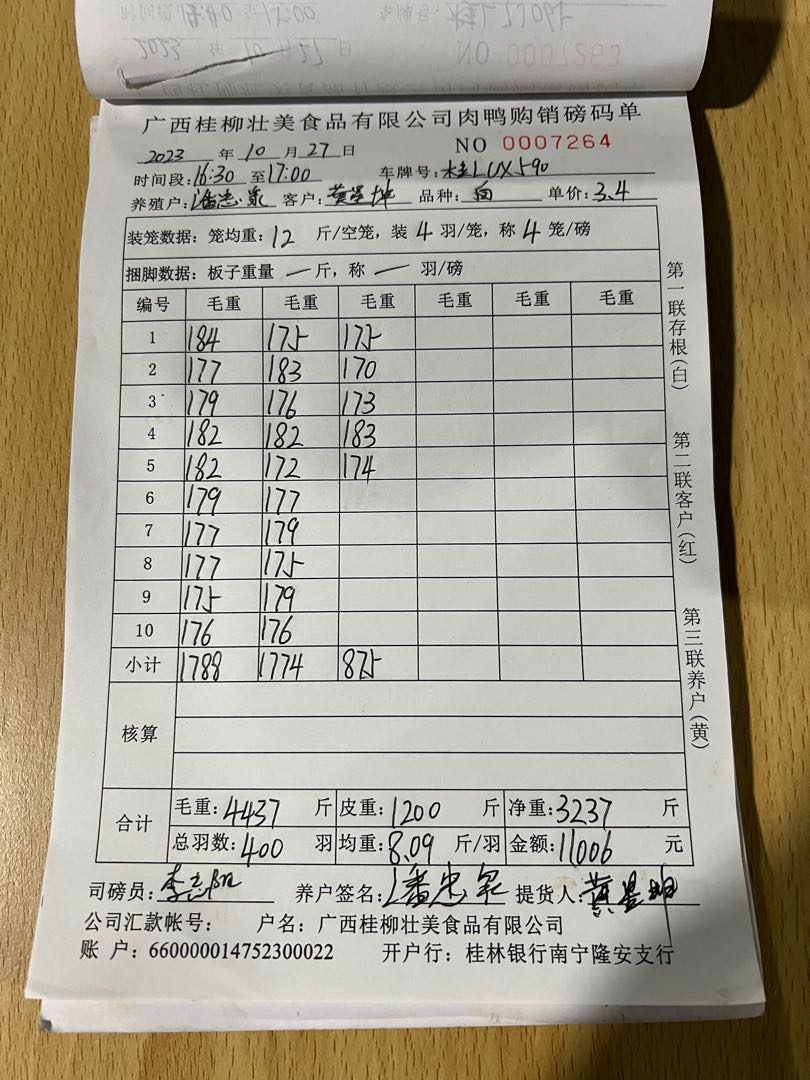 2023 年 10 月 27 日 NO 0007263
广西桂柳壮美食品有限公司肉鸭购销磅码单
2023 年 10 月 27 日 NO 0007264
时间段:16:30 至17:00 车牌号:桂LUX590
养殖户:潘忠泉 客户:黄星坤 品种: 单价:3.4
装笼数据:笼均重:12 斤/空笼,装 4 羽/笼,称 4 笼/磅
捆脚数据:板子重量 一斤,称 一 羽/磅
编号 毛重 毛重 毛重 毛重 毛重 毛重
1 184 175 175
2 177 183 170
3 179 176 173
4 182 182 183
5 182 172 174
6 179 177
7 177 179
8 177 175
9 175 179
10 176 176
小计 1788 1774 875
核算
合计
毛重:4437 斤 皮重:1200 斤 净重:3237 斤
总羽数:400 羽 均重:8.09 斤/羽 金额:11006 元
司磅员:李志 养户签名:潘忠泉 提货人:黄星坤
公司汇款帐号: 户名:广西桂柳壮美食品有限公司
账 户:660000014752300022 开户行:桂林银行南宁隆安支行
第一联存根(白)
第二联客户(红)
第三联养户(黄)